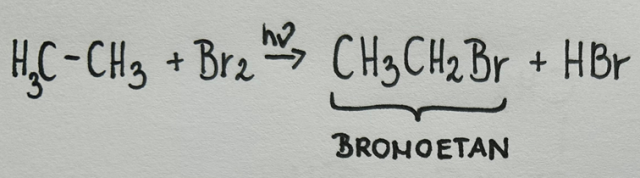 H₃C-CH₃ + Br₂ hν→ CH₃CH₂Br + HBr
BROMOETAN